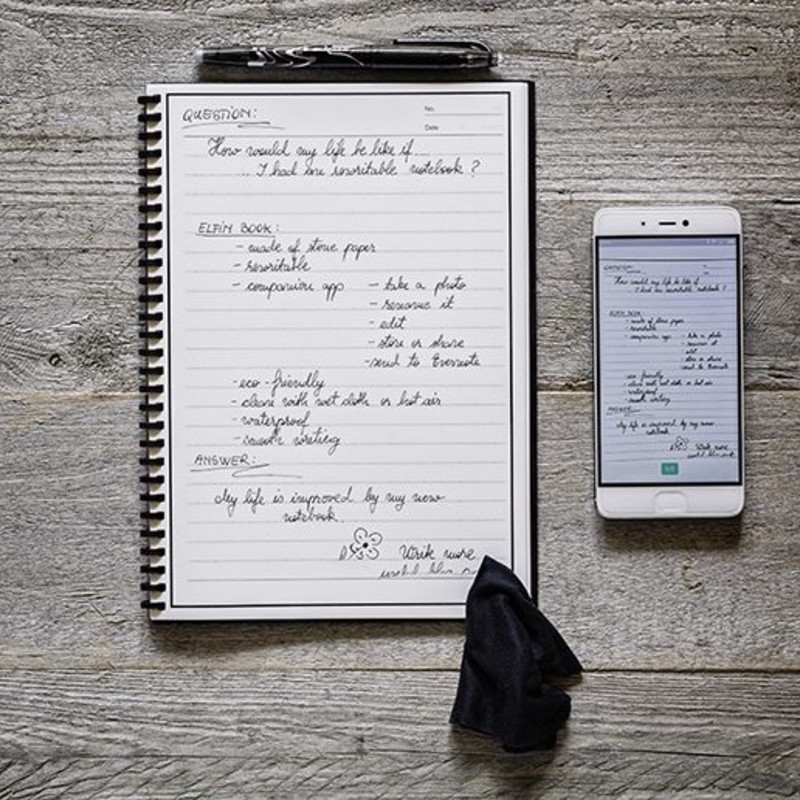 QUESTION:
No.
Date
How would my life be like if...
... I had an rewritable notebook ?
ELFIN BOOK:
- made of stone paper
- rewritable
- companion app - take a photo
- rename it
- edit
- store or share
- send to Evernote
- eco-friendly
- clean with wet cloth or hot air
- waterproof
- smooth writing
ANSWER:
My life is improved by my new
notebook.